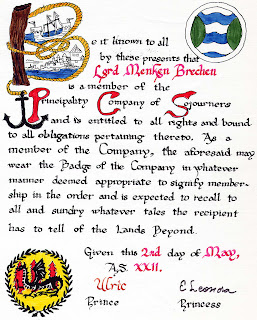 Be it known to all
by these presents that
Lord Menken Brechen
is a member of the
Principality Company of Sojourners
and is entitled to all rights and bound
to all obligations pertaining thereto. As a
member of the Company, the aforesaid may
wear the Badge of the Company in whatever
manner deemed appropriate to signify member-
ship in the order and is expected to recall to
all and sundry whatever tales the recipient
has to tell of the Lands Beyond.
Given this 2nd day of May,
A.S. XXII.
Ulric
Prince
Princess